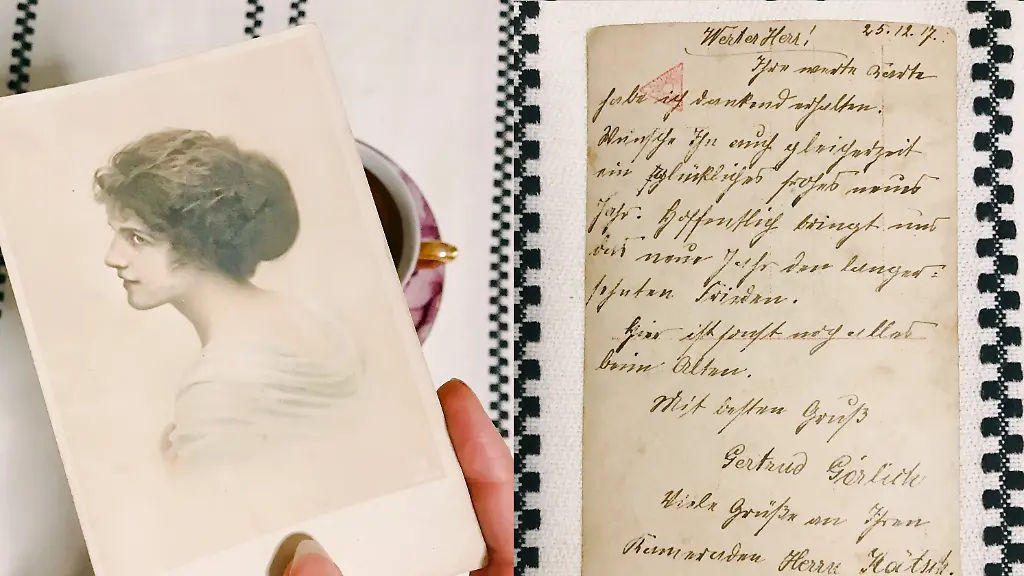 Werter Herr! 25.12.17.
Ihre werte Karte
habe ich dankend erhalten.
Wünsche Ihn auch gleicherzeit
ein glückliches frohes neues
Jahr. Hoffentlich bringt uns
das neue Jahr den langer=
sehnten Frieden.
Hier ist sonst noch alles
beim Alten.
Mit besten Gruß
Gertrud Görlich
Viele Grüße an Ihren
Kameraden Herrn